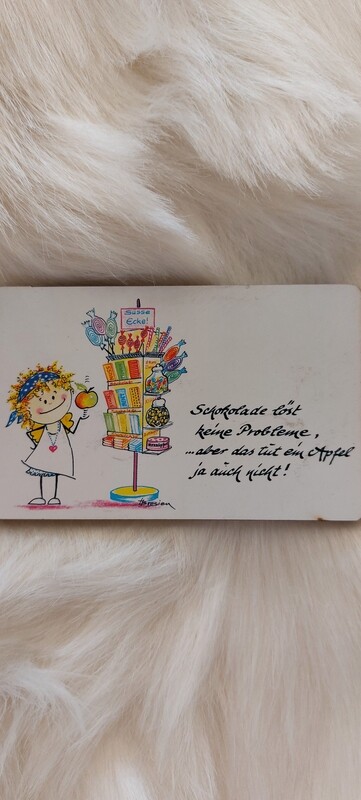 Süsse
Ecke!
Schokolade löst
keine Probleme,
...aber das tut ein Apfel
ja auch nicht!